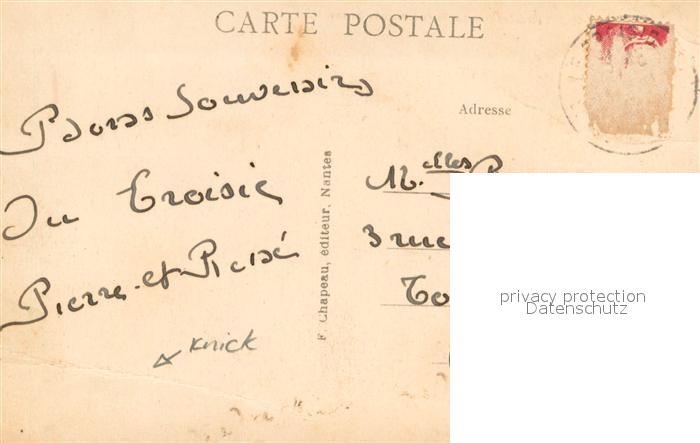 CARTE POSTALE
Bons Souvenirs
Du Croisic
Pierre et
Knick
F. Chapeau, éditeur, Nantes
Adresse
M.elles
3 rue
To
privacy protection
Datenschutz